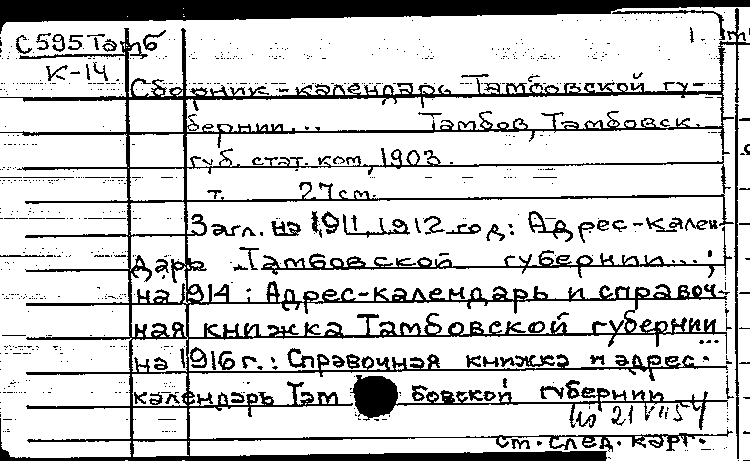 С595Тамб 1.
К-14.
Сборник-календарь Тамбовской гу-
бернии... Тамбов, Тамбовск.
губ. стат. ком., 1903.
т. 27см.
Загл. на 1911, 1912 год: Адрес-кален-
дарь Тамбовской губернии...;
на 1914: Адрес-календарь и справоч-
ная книжка Тамбовской губернии...
на 1916г.: Справочная книжка и адрес-
календарь Тамбовской губернии
21 VII 54
см. след. карт.